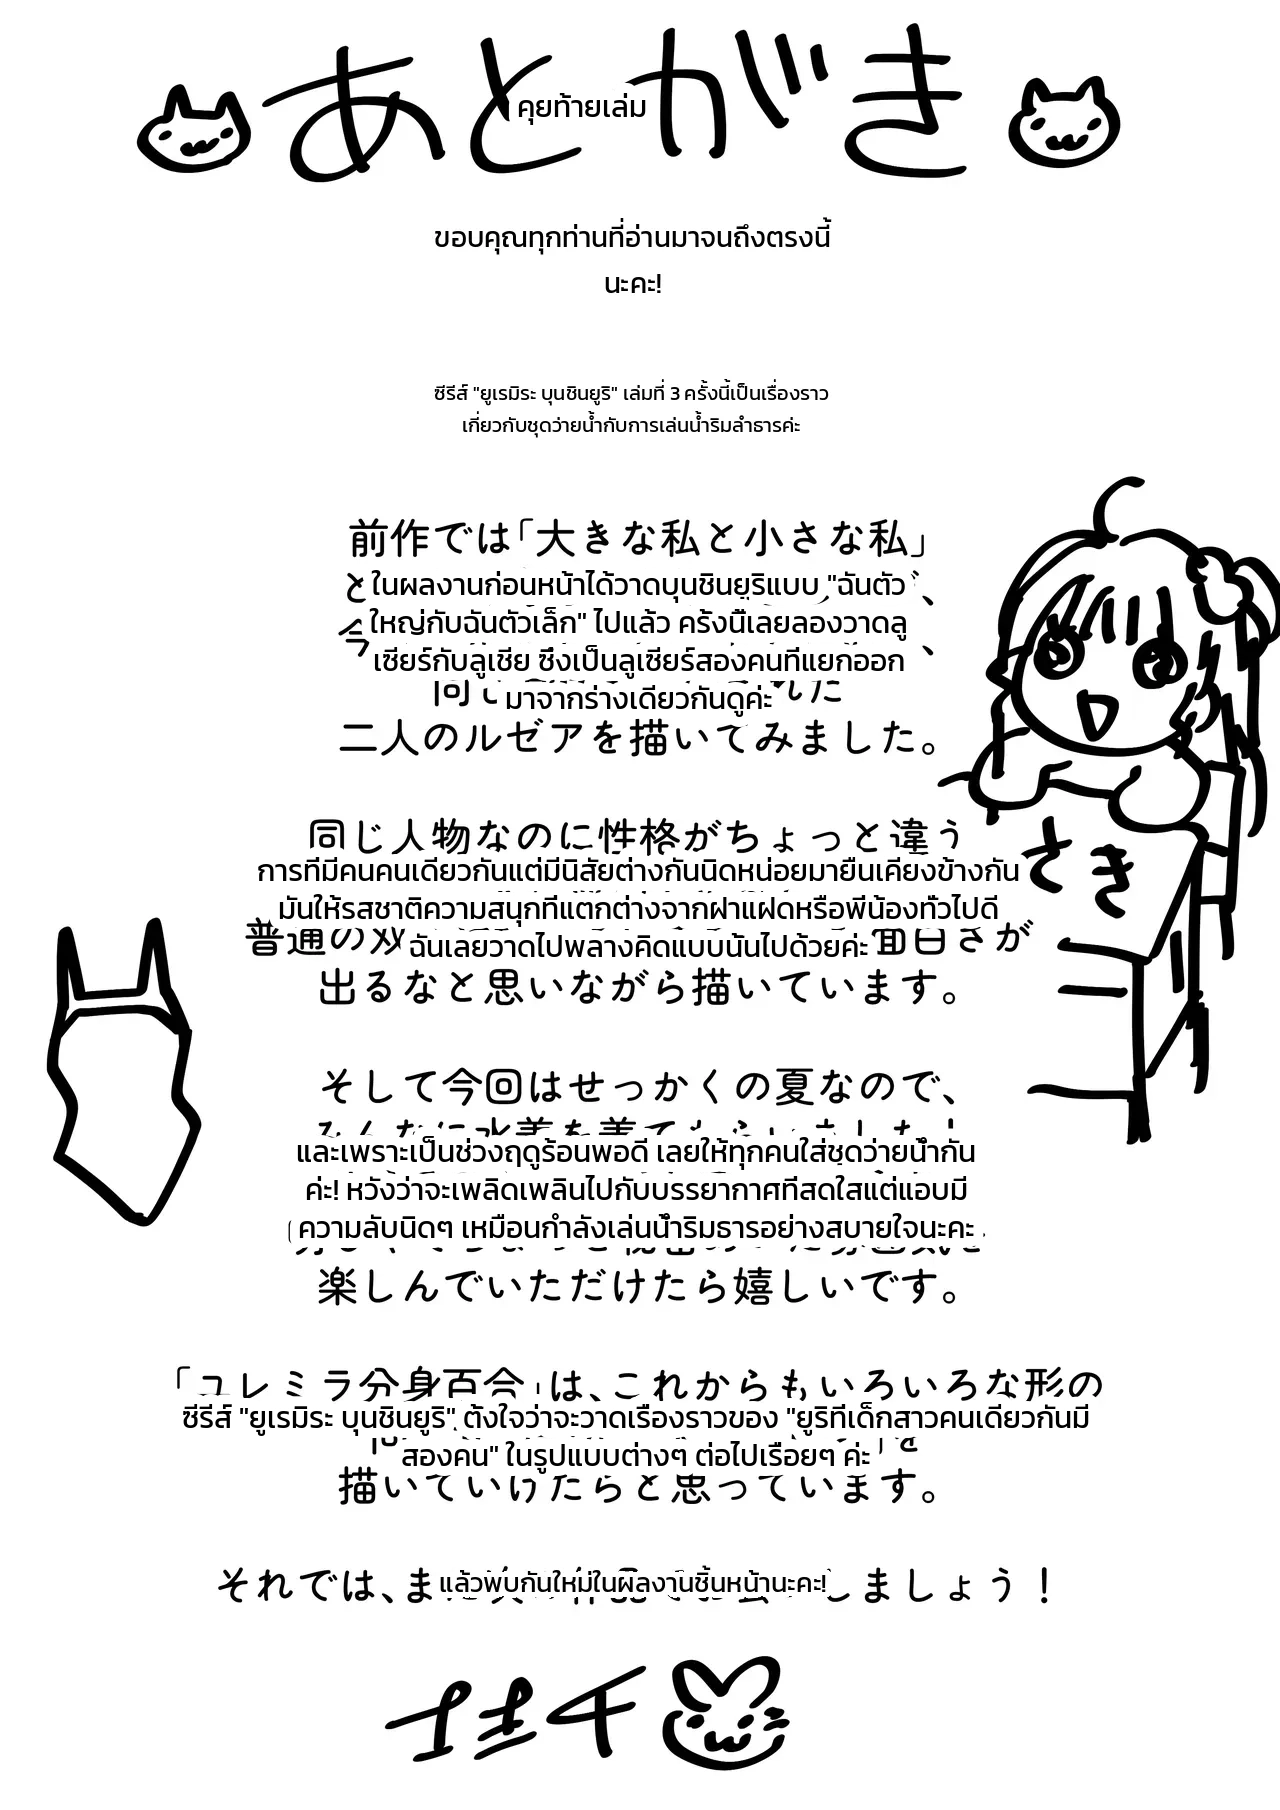 あとがき
คุยท้ายเล่ม
ขอบคุณทุกท่านที่อ่านมาจนถึงตรงนี้
นะคะ!
ซีรีส์ "ยูเรมิระ บุนชินยูริ" เล่มที่ 3 ครั้งนี้เป็นเรื่องราว
เกี่ยวกับชุดว่ายน้ำกับการเล่นน้ำริมลำธารค่ะ
前作では「大きな私と小さな私」
ในผลงานก่อนหน้าได้วาดบุนชินยูริแบบ "ฉันตัว
ใหญ่กับฉันตัวเล็ก" ไปแล้ว ครั้งนี้เลยลองวาดลู
เซียร์กับลูเซีย ซึ่งเป็นลูเซียร์สองคนที่แยกออก
มาจากร่างเดียวกันดูค่ะ
二人のルゼアを描いてみました。
同じ人物なのに性格がちょっと違う
การที่มีคนคนเดียวกันแต่มีนิสัยต่างกันนิดหน่อยมายืนเคียงข้างกัน
มันให้รสชาติความสนุกที่แตกต่างจากฝาแฝดหรือพี่น้องทั่วไปดี
普通の双 面白さが
ฉันเลยวาดไปพลางคิดแบบนั้นไปด้วยค่ะ
出るなと思いながら描いています。
さき
そして今回はせっかくの夏なので、
みんなに水着を着てもらいました！
และเพราะเป็นช่วงฤดูร้อนพอดี เลยให้ทุกคนใส่ชุดว่ายน้ำกัน
ค่ะ! หวังว่าจะเพลิดเพลินไปกับบรรยากาศที่สดใสแต่แอบมี
ความลับนิดๆ เหมือนกำลังเล่นน้ำริมธารอย่างสบายใจนะคะ
楽しんでいただけたら嬉しいです。
「ユレミラ分身百合」は、これからもいろいろな形の
ซีรีส์ "ยูเรมิระ บุนชินยูริ" ตั้งใจว่าจะวาดเรื่องราวของ "ยูริที่เด็กสาวคนเดียวกันมี
สองคน" ในรูปแบบต่างๆ ต่อไปเรื่อยๆ ค่ะ
描いていけたらと思っています。
それでは、ま しましょう！
แล้วพบกันใหม่ในผลงานชิ้นหน้านะคะ!